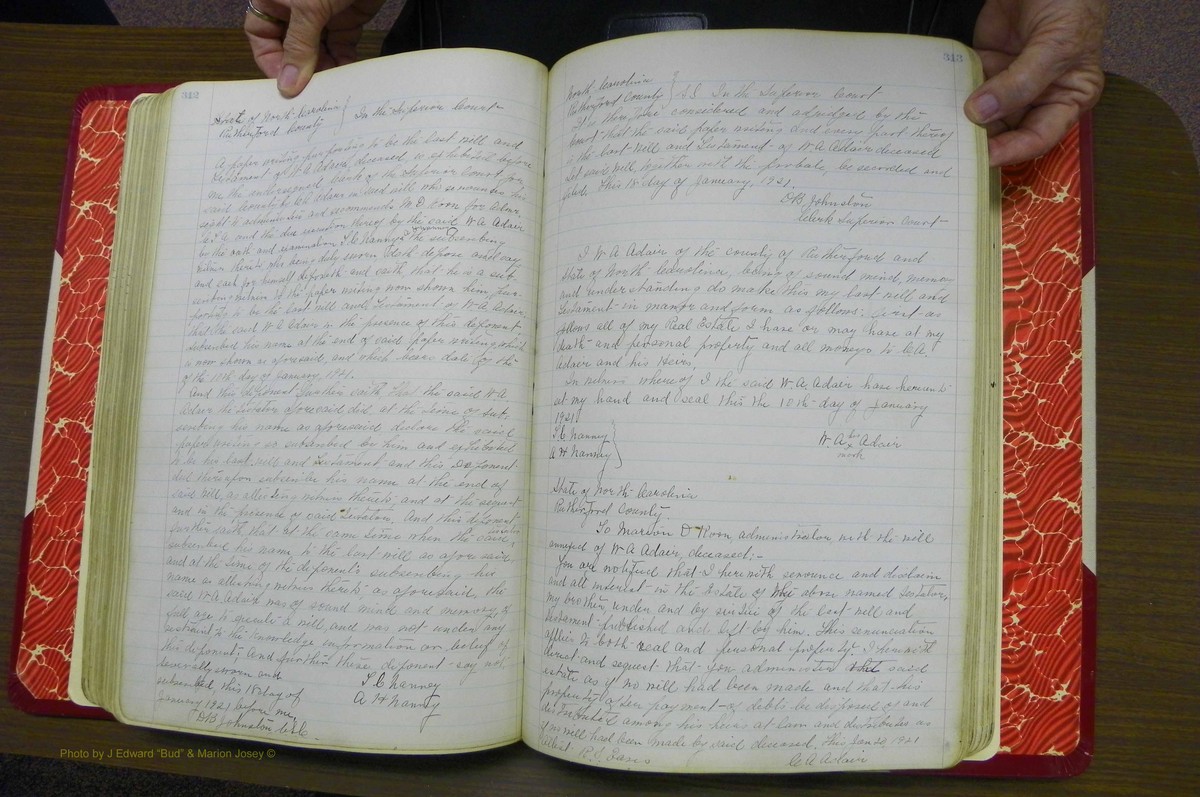 312
State of North Carolina
Rutherford County
In the Superior Court
A paper writing purporting to be the last will and
testament of W A Adair deceased is exhibited before
me the undersigned, Clerk of the Superior Court for
said County by C A Adair in said will who renounces his
right to administer and recommends M D Koon for Admr.
and the due execution thereof by the said W A Adair
by the oath and examination J C Nanney the subscribing
witness thereto who being duly sworn doth depose and say
and each for himself deposeth and saith that he is a sub
scribing witness to the paper writing now shown him pur-
porting to be the last will and Testament of W A Adair
that the said W A Adair in the presence of this deponent
subscribed his name at the end of said paper writing which
is now shown as aforesaid, and which bears date of the
of the 10th day of January 1921.
And this deponent further saith that the said W A
Adair the testator aforesaid did, at the time of sub-
scribing his name as aforesaid declare the said
paper writing so subscribed by him and exhibited
to be his last will and testament and this deponent
did thereupon subscribe his name at the end of
said will, as attesting witness thereto, and at the request
and in the presence of said testator. And this deponent
further saith that at the same time when the said testator
subscribed his name to the last will as aforesaid
and at the time of the deponent's subscribing his
name as attesting witness thereto as aforesaid, the
said W A Adair was of sound mind and memory, of
full age to execute a will and was not under any
restraint to the knowledge information or belief of
this deponent; And further these deponent say not
severally sworn and
subscribed, this 18 day of
January 1921 before me,
O B Johnston Clk.
J C Nanney
A H Nanney
313
North Carolina
Rutherford County
S.S. In the Superior Court
It is therefore considered and adjudged by the
Court that the said paper writing and every part thereof
is the last Will and Testament of W A Adair deceased
Let said Will, together with the probate, be recorded and
filed. This 18 day of January, 1921.
O B Johnston
Clerk Superior Court
I W A Adair of the county of Rutherford and
State of North Carolina, being of sound mind, memory
and understanding do make this my last will and
Testament in manor and form as follows: First as
follows all of my Real Estate I have or may have at my
death and personal property and all moneys to C A
Adair and his Heirs.
In witness where of I the said W. A. Adair have hereunto
set my hand and seal this the 10th day of January
1921
J C Nanney
A H Nanney
W. A. his x mark Adair
State of North Carolina
Rutherford County.
To Marion D Koon, administrator, with the will
annexed of W A Adair, deceased:-
You are notified that I here with renounce and disclaim
and all interest in the Estate of the above named testator,
my brother, under and by virtue of the last will and
testament published and left by him. This renunciation
applies to both real and personal property. I herewith
direct and request that you administer said
estate as if no will had been made and that his
property after payment of debts be disposed of and
distributed among his heirs at law and distributes as
if no will had been made by said deceased. This Jan 20, 1921
C A Adair
Photo by J Edward "Bud" & Marion Josey ©